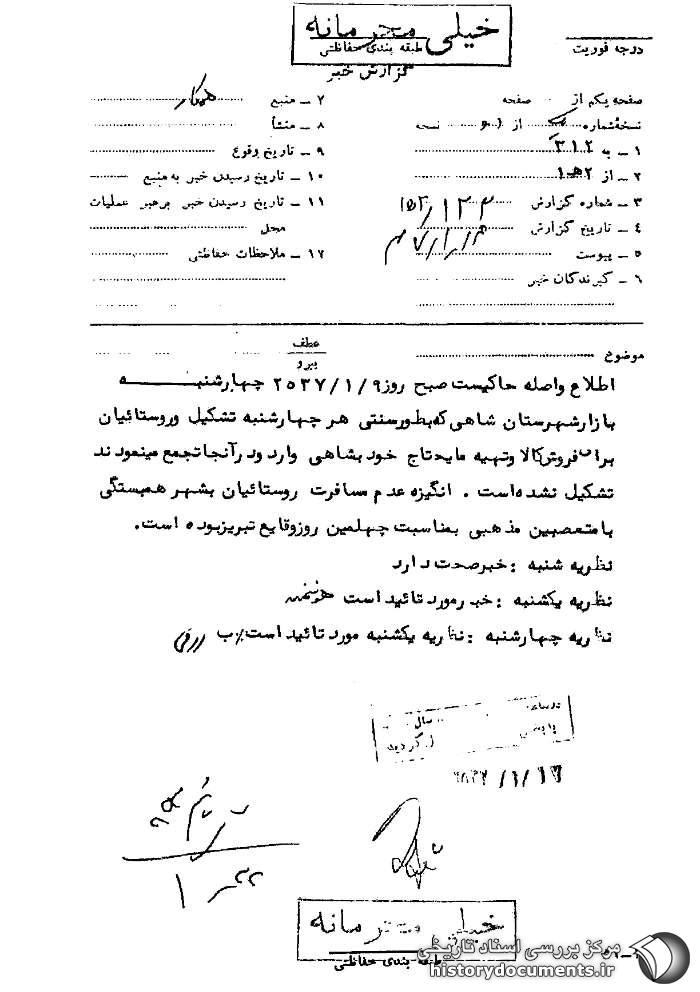 خیلی محرمانه
طبقه بندی حفاظتی
گزارش خبر
درجه فوریت
صفحه یکم از صفحه
نسخه شماره از نسخه
۱ ـ به ۳۱۲
۲ ـ از ۲ه۱
۳ ـ شماره گزارش
۴ ـ تاریخ گزارش
۵ ـ پیوست
۶ ـ گیرندگان خبر
۷ ـ منبع همکار
۸ ـ منشأ
۹ ـ تاریخ وقوع
۱۰ ـ تاریخ رسیدن خبر به منبع
۱۱ ـ تاریخ رسیدن خبر برهبر عملیات
محل
۱۲ ـ ملاحظات حفاظتی
موضوع
عطف
پیرو
اطلاع واصله حاکیست صبح روز ۲۵۳۷/۱/۹ چهارشنبه
بازار شهرستان شاهی که بطور سنتی هر چهارشنبه تشکیل و روستائیان
برای فروش کالا و تهیه مایحتاج خود بشاهی وارد و در آنجا تجمع مینمودند
تشکیل نشده است . انگیزه عدم مسافرت روستائیان بشهر همبستگی
با متعصبین مذهبی بمناسبت چهلمین روز وقایع تبریز بوده است.
نظریه شنبه : خبر صحت دارد
نظریه یکشنبه : خبر مورد تائید است
نظریه چهارشنبه : نظریه یکشنبه مورد تائید است. ب
سال
گردید
خیلی محرمانه
طبقه بندی حفاظتی
مرکز بررسی اسناد تاریخی
historydocuments.ir